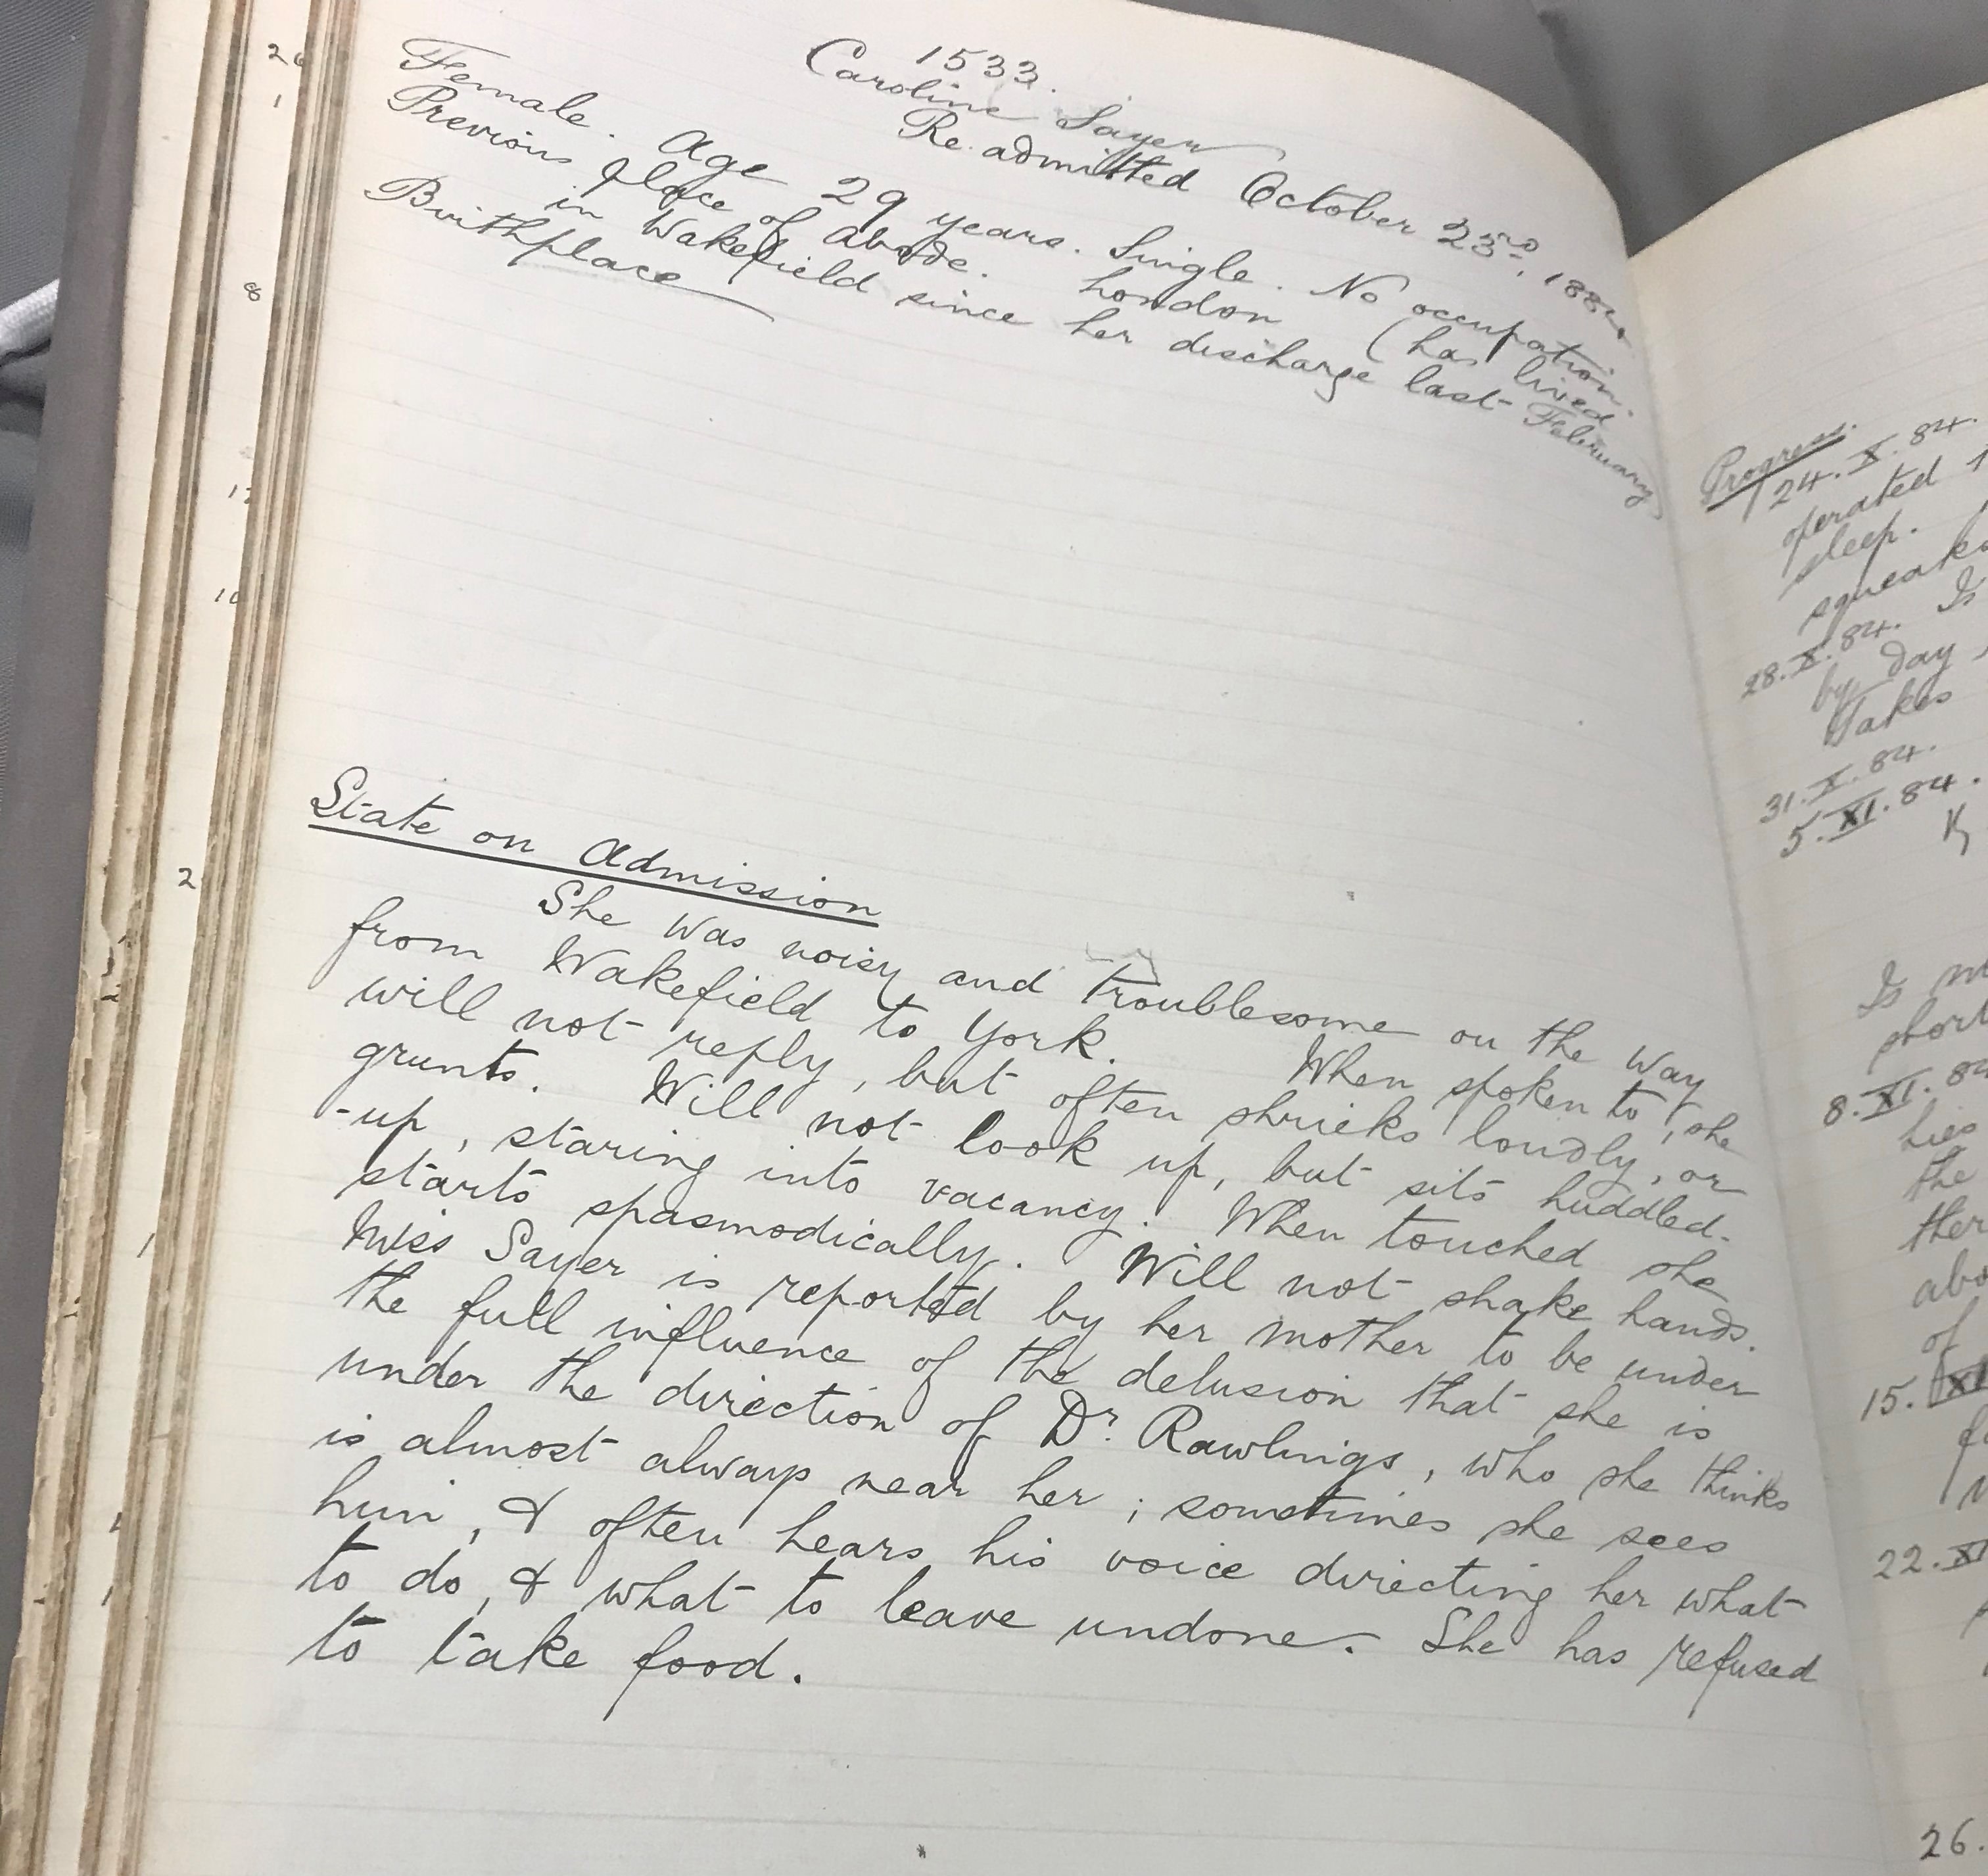 1533.
Caroline Sayer
Re admitted October 23rd, 1884
Female. Age 29 years. Single. No occupation.
Previous place of abode. London (has lived
in Wakefield since her discharge last February)
Birthplace
State on Admission
She was noisy and troublesome on the way
from Wakefield to York. When spoken to, she
will not reply, but often shrieks loudly, or
grunts. Will not look up, but sits huddled-
-up, staring into vacancy. When touched she
starts spasmodically. Will not shake hands.
Miss Sayer is reported by her mother to be under
the full influence of the delusion that she is
under the direction of Dr. Rawlings, who she thinks
is almost always near her; sometimes she sees
him, & often hears his voice directing her what
to do, & what to leave undone. She has refused
to take food.
Progress.
24.X.84.
operated
sleep.
squeaks
Is
28.X.84.
by day
Takes
31.X.84.
5.XI.84.
Is
short
8.XI.84
lies
the
of
15.XI
22.XI
26.
26
1
8
12
10
2
1